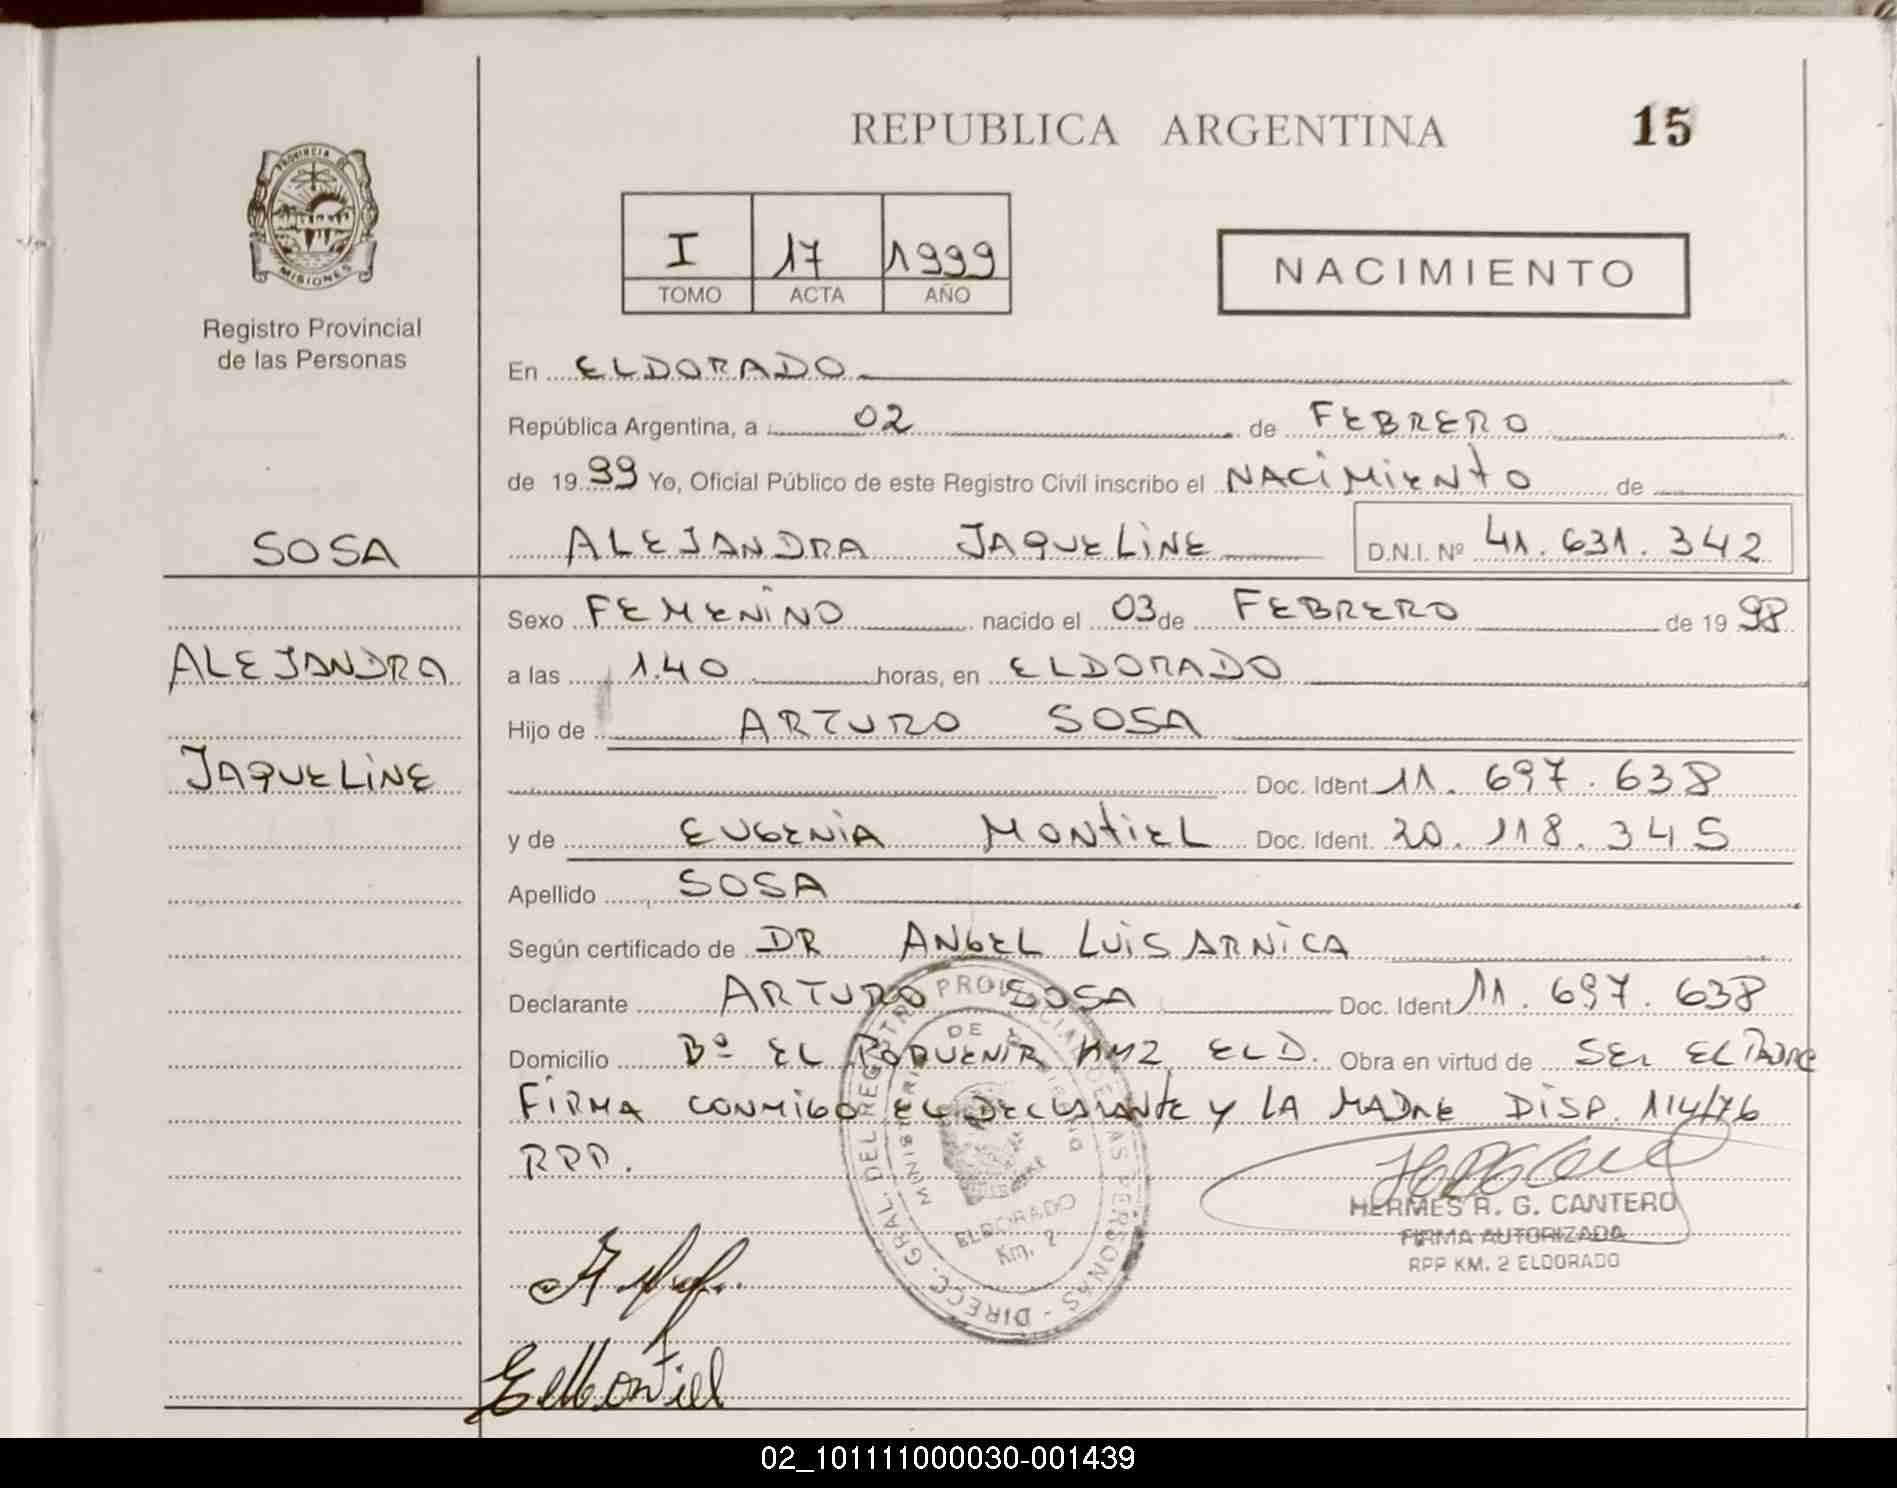 REPUBLICA ARGENTINA 15
PROVINCIA DE
MISIONES
Registro Provincial
de las Personas
I 17 1999
TOMO ACTA AÑO
NACIMIENTO
En ELDORADO
República Argentina, a 02 de FEBRERO
de 1999 Yo, Oficial Público de este Registro Civil inscribo el NACIMIENTO de
SOSA ALEJANDRA JAQUELINE D.N.I. Nº 41.631.342
Sexo FEMENINO nacido el 03 de FEBRERO de 1998
ALEJANDRA a las 1.40 horas, en ELDORADO
Hijo de ARTURO SOSA
JAQUELINE Doc. Ident. 11.697.638
y de EUGENIA MONTIEL Doc. Ident. 20.118.345
Apellido SOSA
Según certificado de DR ANGEL LUIS ARNICA
Declarante ARTURO SOSA Doc. Ident. 11.697.638
Domicilio Bº EL PORVENIR KM2 ELD. Obra en virtud de SER EL PADRE
FIRMA CONMIGO EL DECLARANTE Y LA MADRE DISP. 114/76
RPP.
DIRECC. GRAL. DEL REGISTRO PROVINCIAL DE LAS PERSONAS
MINISTERIO DE
ELDORADO
Km. 2
HERMES R. G. CANTERO
FIRMA AUTORIZADA
RPP KM. 2 ELDORADO
E Montiel
02_101111000030-001439